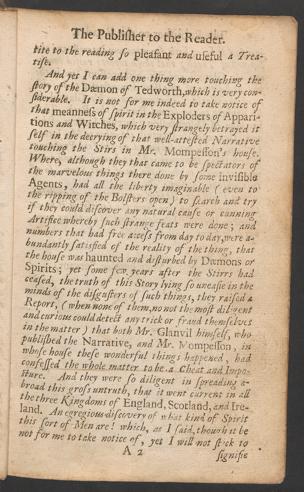 The Publisher to the Reader.
tite to the reading so pleasant and useful a Trea-
tise.
And yet I can add one thing more touching the
story of the Dæmon of Tedworth, which is very con-
siderable. It is not for me indeed to take notice of
that meanness of spirit in the Exploders of Appari-
tions and Witches, which very strangely betrayed it
self in the decrying of that well-attested Narrative
touching the Stirs in Mr. Mompesson's house.
Where, although they that came to be spectators of
the marvelous things there done by some invisible
Agents, had all the liberty imaginable (even to
the ripping of the Bolsters open) to search and try
if they could discover any natural cause or cunning
Artifice whereby such strange feats were done; and
numbers that had free access from day to day, were a-
bundantly satisfied of the reality of the thing, that
the house was haunted and disturbed by Dæmons or
Spirits; yet some few years after the Stirrs had
ceased, the truth of this Story lying so uneasie in the
minds of the disgusters of such things, they raised a
Report, (when none of them, no not the most diligent
and curious could detect any trick or fraud themselves
in the matter) that both Mr. Glanvil himself, who
published the Narrative, and Mr. Mompesson, in
whose house these wonderful things happened, had
confessed the whole matter to be a Cheat and Impo-
sture. And they were so diligent in spreading a-
broad this gross untruth, that it went current in all
the three Kingdoms of England, Scotland, and Ire-
land. An egregious discovery of what kind of Spirit
this sort of Men are! which, as I said, though it be
not for me to take notice of, yet I will not stick to
A 2
signifie